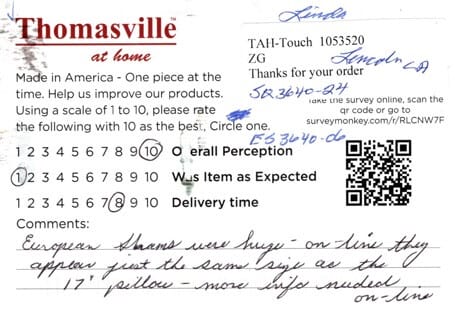 Linda
Thomasville™
at home
TAH-Touch 1053520
ZG
Lincoln CA
Thanks for your order
SQ3640-24
Made in America - One piece at the
time. Help us improve our products.
Using a scale of 1 to 10, please rate
the following with 10 as the best, Circle one.
take the survey online, scan the
qr code or go to
surveymonkey.com/r/RLCNW7F
ES3640-06
1 2 3 4 5 6 7 8 9 10 Overall Perception
1 2 3 4 5 6 7 8 9 10 Was Item as Expected
1 2 3 4 5 6 7 8 9 10 Delivery time
Comments:
European Shams were huge - on-line they
appear just the same size as the
17" pillow - more info needed
on-line